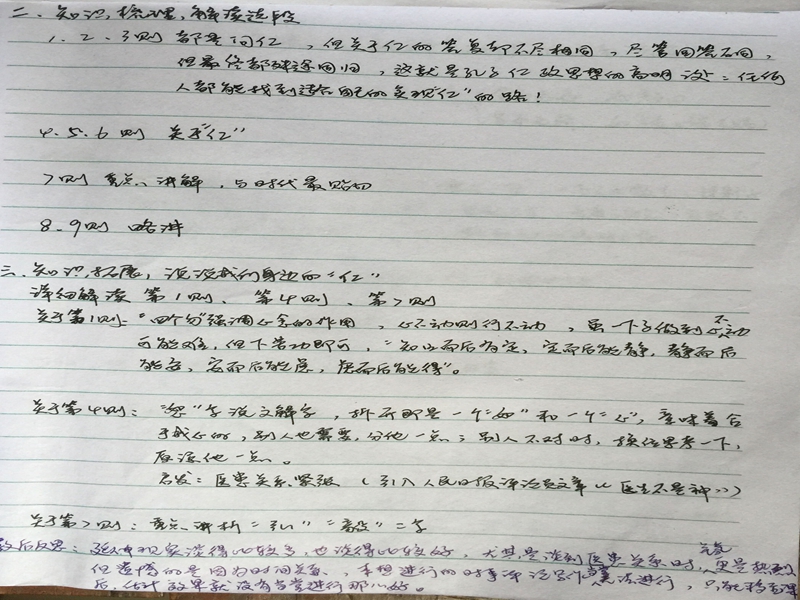 二、知识梳理,解读选段
1、2、3则 都是问仁,但关于仁的答复却不尽相同,尽管回答不同,
但最终都殊途同归,这就是孔子仁政思想的高明设:任何
人都能找到适合自己的实现"仁"的路!
4、5、6则 关于"仁"
7则 重点讲解,与时代最贴切
8、9则 略讲
三、知识拓展,说说我们身边的"仁"
详细解读 第1则、第4则、第7则
关于第1则:"四个勿"强调心念的作用,心不动则行不动,虽一下子做到心不动
可能难,但下苦功即可,"知止而后有定,定而后能静,静而后
能安,安而后能虑,虑而后能得"。
关于第4则:"恕"字说文解字,拆开即是一个"如"和一个"心",意味着合
于我心的,别人也需要,分他一点;别人不对时,换位思考一下,
原谅他一点。
启发:医患关系紧张(引入人民日报评论员文章《医生不是神》)
关于第7则:重点讲析"弘""毅"二字
教后反思:现家谈得比较多,也谈得比较好,尤其是谈到医患关系时,更是热烈
但遗憾的是因为时间关系,本想进行的时事评论写作无法进行,只能移至课
后,估计效果就没有当堂进行那么好。